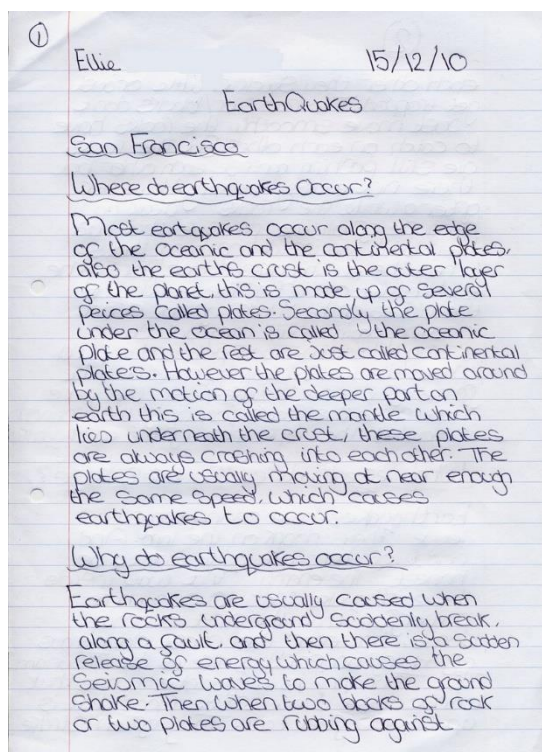 1
Ellie 15/12/10
EarthQuakes
San Francisco
Where do earthquakes Occur?
Most eartquakes occur along the edge
of the Oceanic and the continental plates,
also the earths crust is the outer layer
of the planet, this is made up of several
peices called plates. Secondly the plate
under the ocean is called the oceanic
plate and the rest are just called continental
plates. However the plates are moved around
by the motion of the deeper part on
earth this is called the mantle which
lies underneath the crust, these plates
are always crashing into each other. The
plates are usually moving at near enough
the same speed, which causes
earthquakes to occur.
Why do earthquakes occur?
Earthquakes are usually caused when
the rocks underground suddenly break,
along a fault, and then there is a sudden
release of energy which causes the
seismic waves to make the ground
shake. Then when two blocks of rock
or two plates are rubbing against